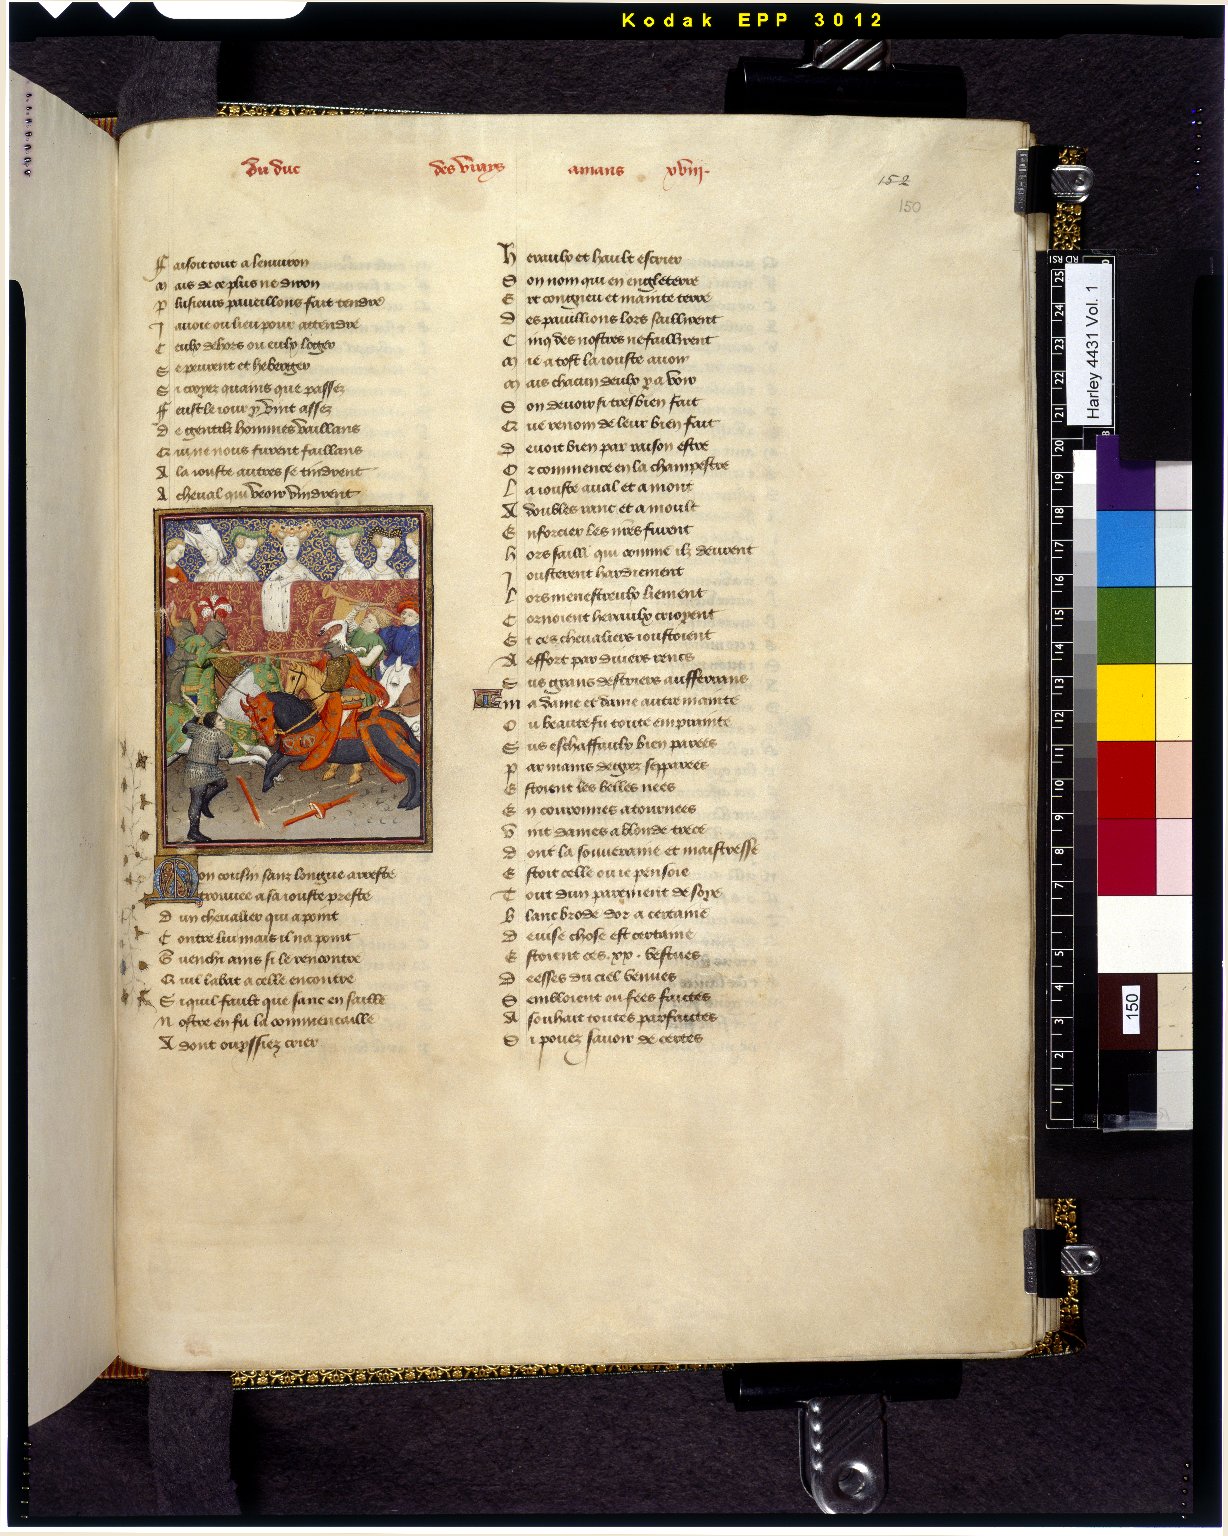 Kodak EPP 3012
Du duc des vrays amans xviii.
152
150
Faisoit tout a lenuiron
Mais de ce plus ne diron
Plusieurs paueillons fait tendre
Jauoie ou lieu pour attendre
Ceulx dehors ou eulx logier
Se peurent et hebergier
Si croyez quains que passez
Feust le iour y vint assez
De gentilz hommes vaillans
Qui ne nous furent faillans
A la iouste autres se tindrent
A cheual qui veoir vindrent
Mon cousin sanz longue arreste
trouuee a sa iouste preste
Dun cheualier qui a point
Contre lui mais il na point
Guenchi ains si le rencontre
Quil labat a celle encontre
Si quil fault que sanc en saille
Nostre en fu la commencaille
Adont ouyssiez crier
Heraulx et hault escrier
Son nom qui en engleterre
Ert congneu et mainte terre
Des pauillions lors saillirent
Cinq des nostres ne faillirent
Mie a tost la iouste auoir
Mais chacun deulx y a voir
Son deuoir si tres bien fait
Que renom de leur bien fait
Deuoit bien par raison estre
Or commence en la champestre
La iouste aual et a mont
A doubles renc et a moult
Enforcier les nres furent
Hors sailli qui comme ilz deurent
Jousterent hardiement
Lors menestreulx liement
Cornoient heraulx crioyent
Et ces cheualiers ioustoient
A effort par diuers rencs
Sus grans destriers aufferrans
Ma dame et dame autre mainte
Ou beaute fu toute empreinte
Sus eschaffaulx bien parees
Par mains degrez sepparees
Estoient les belles nees
En couronnes atournees
Vint dames a blonde trece
Dont la souueraine et maistresse
Estoit celle ou ie pensoie
Tout dun parement de soye
Blanc brode dor a certaine
Deuise chose est certaine
Estoient ces .xx. vestues
Deesses du ciel venues
Sembloient ou fees faictes
A souhait toutes parfaictes
Si pouez sauoir de certes
Harley 4431 Vol. 1
150